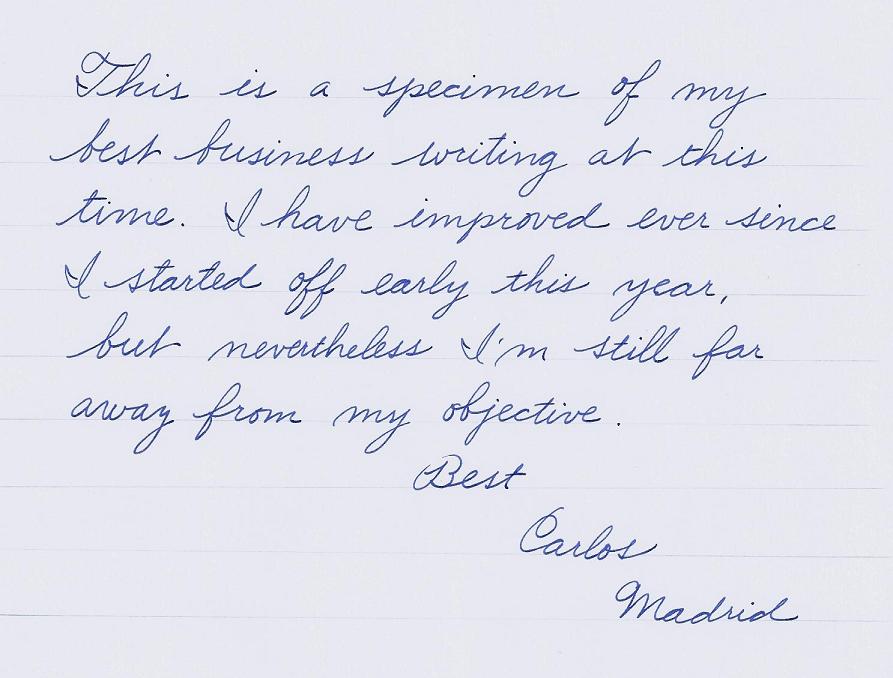 This is a specimen of my
best business writing at this
time. I have improved ever since
I started off early this year,
but nevertheless I'm still far
away from my objective.
Best
Carlos
Madrid